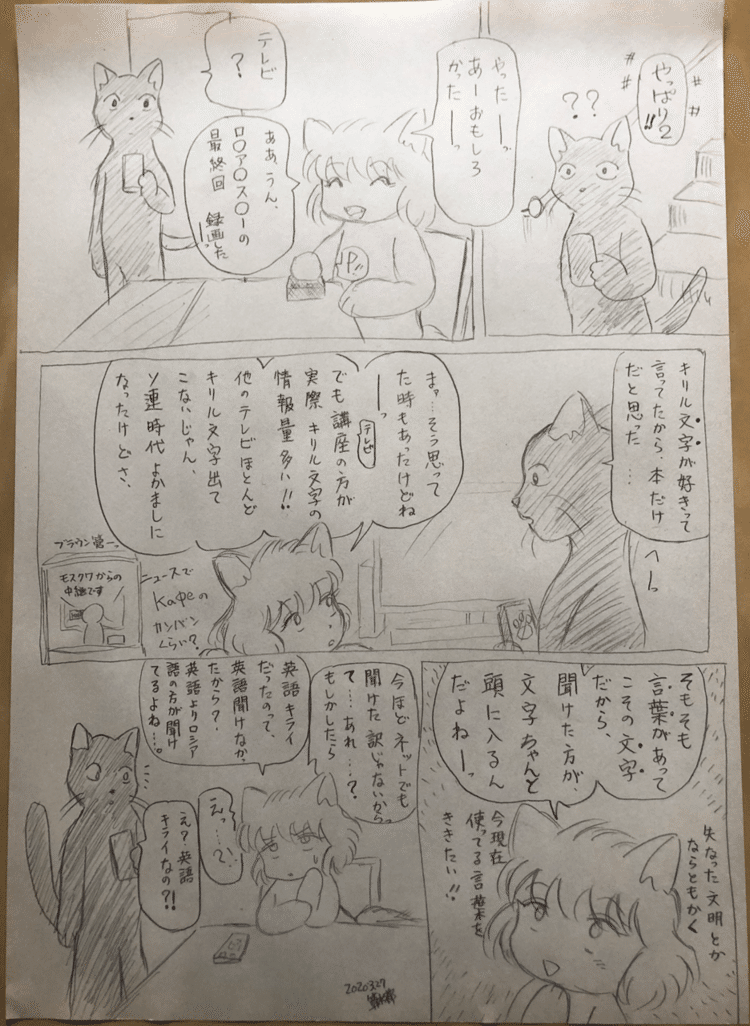 やっぱり2!!
??
やったーっ
あーおもしろ
かったーっ
テレビ
?
ああうん、
ロ〇ア〇ス〇ーの
最終回 録画した
キリル文字が好きって
言ってたから、本だけ
だと思った……
へーっ
まァ…そう思って
た時もあったけどね
ーっ
でも講座の方が
テレビ
実際キリル文字の
情報量多い!!
他のテレビほとんど
キリル文字出て
こないじゃん、
ソ連時代よかましに
なったけどさ、
ニュースで
кафеの
カンバン
くらい?
ブラウン管→
モスクワからの
中継です
そもそも
言葉があって
こその文字
だから、
聞けた方が、
文字ちゃんと
頭に入るん
だよねーっ
失なった文明とか
ならともかく
今現在
使ってる言葉を
ききたい!!
今ほどネットでも
聞けた訳じゃないからっ
て……あれ…?
もしかしたら
英語キライ
だったのって、
英語聞けなか
たから?
英語よりロシア
語の方が聞け
てるよね…。
えっ…?!
え?英語
キライなの?!
2020327